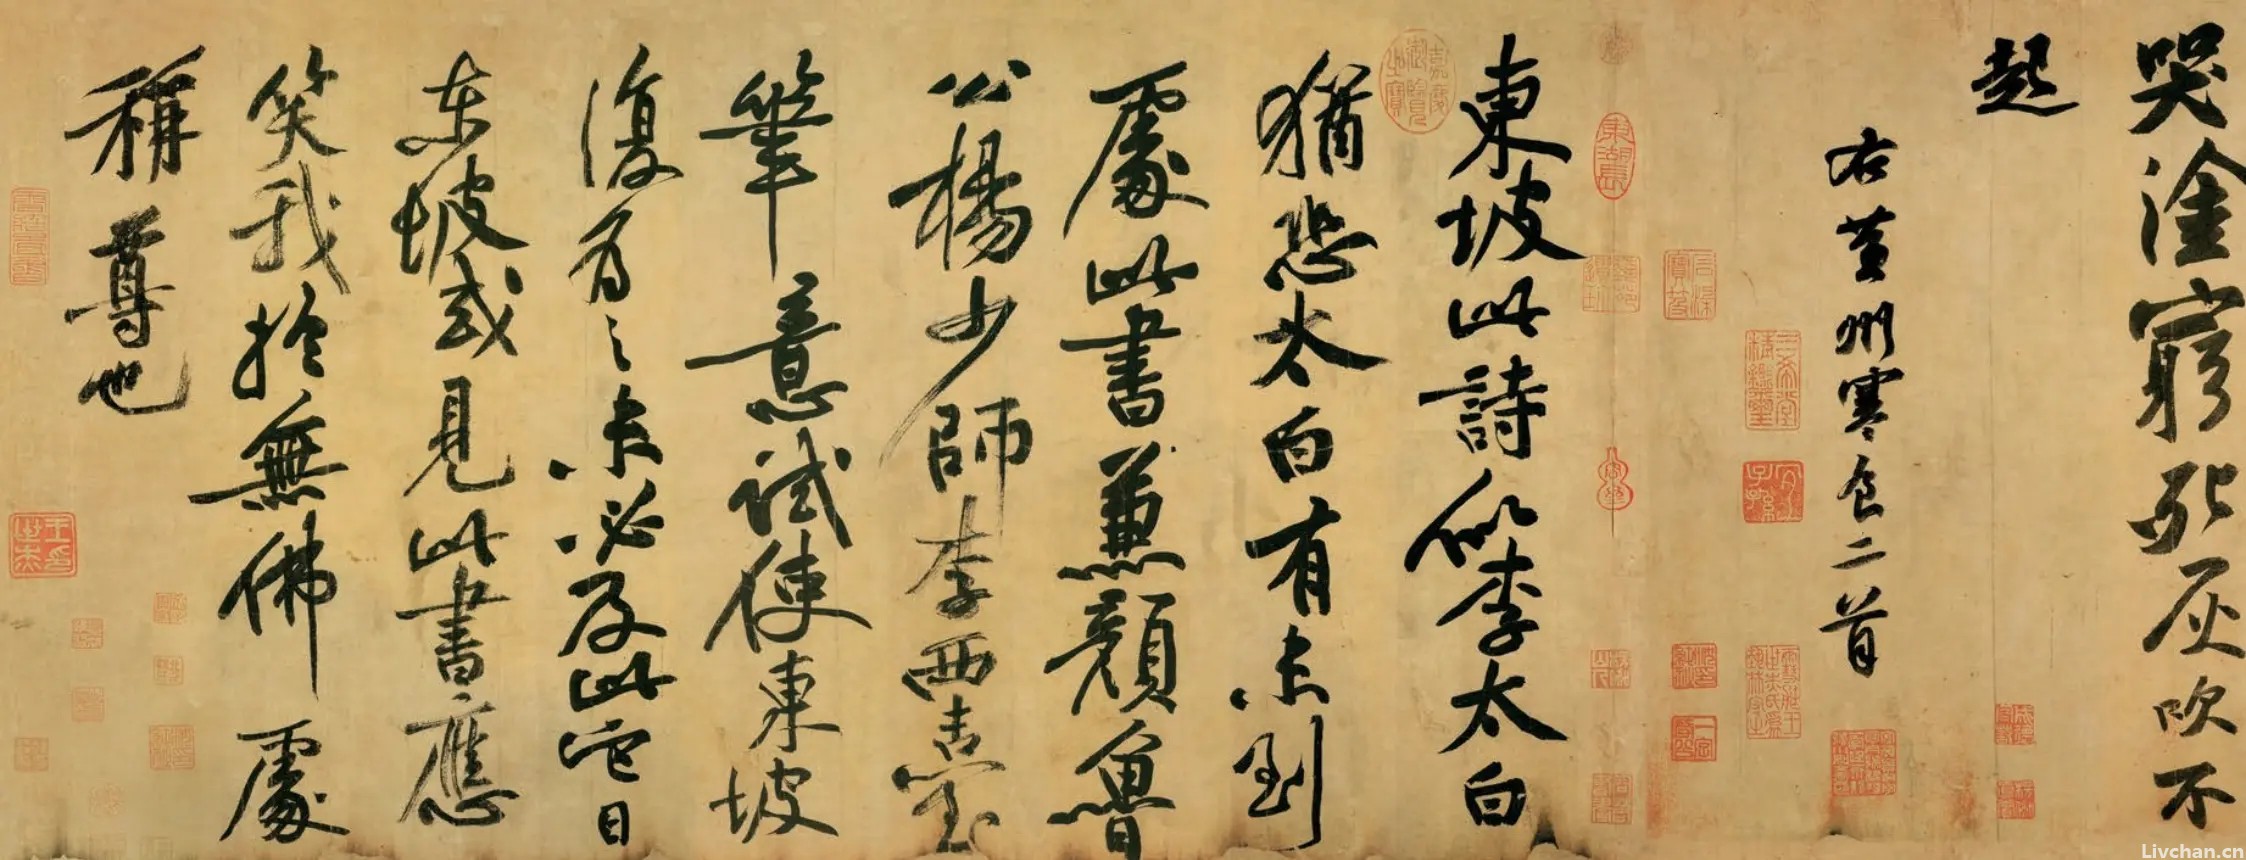 哭塗窮死灰吹不
起
右黄州寒食二首
東坡此詩似李太白
猶恐太白有未到
處此書兼顔魯
公楊少師李西臺
筆意試使東坡
復為之未必及此它日
东坡或見此書應
笑我於無佛處
稱尊也
Livchan.cn